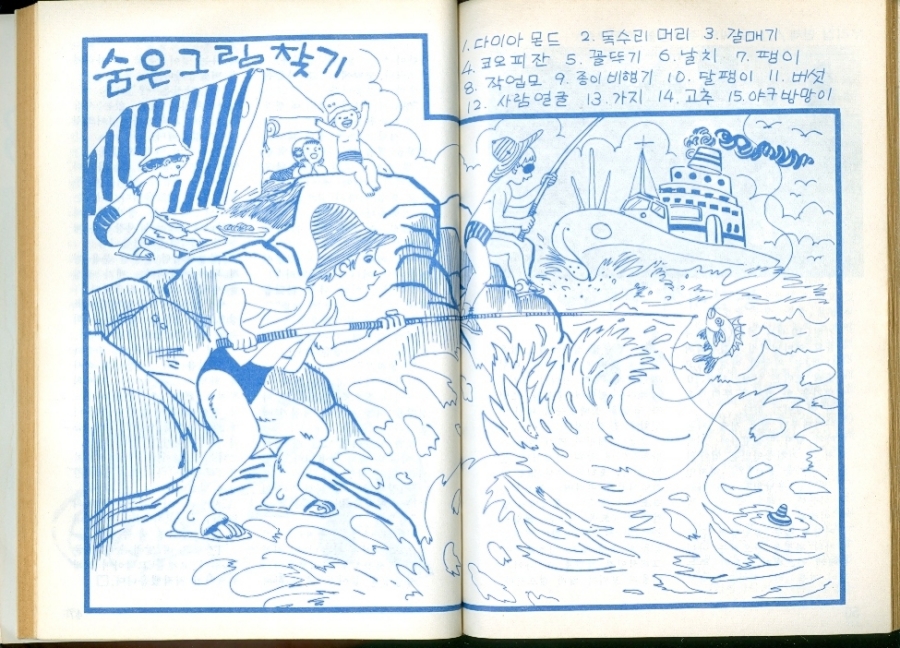 숨은그림찾기
1. 다이아몬드 2. 독수리 머리 3. 갈매기
4. 코오피잔 5. 꼴뚜기 6. 날치 7. 팽이
8. 작업모 9. 종이비행기 10. 달팽이 11. 버섯
12. 사람얼굴 13. 가지 14. 고추 15. 야구방망이